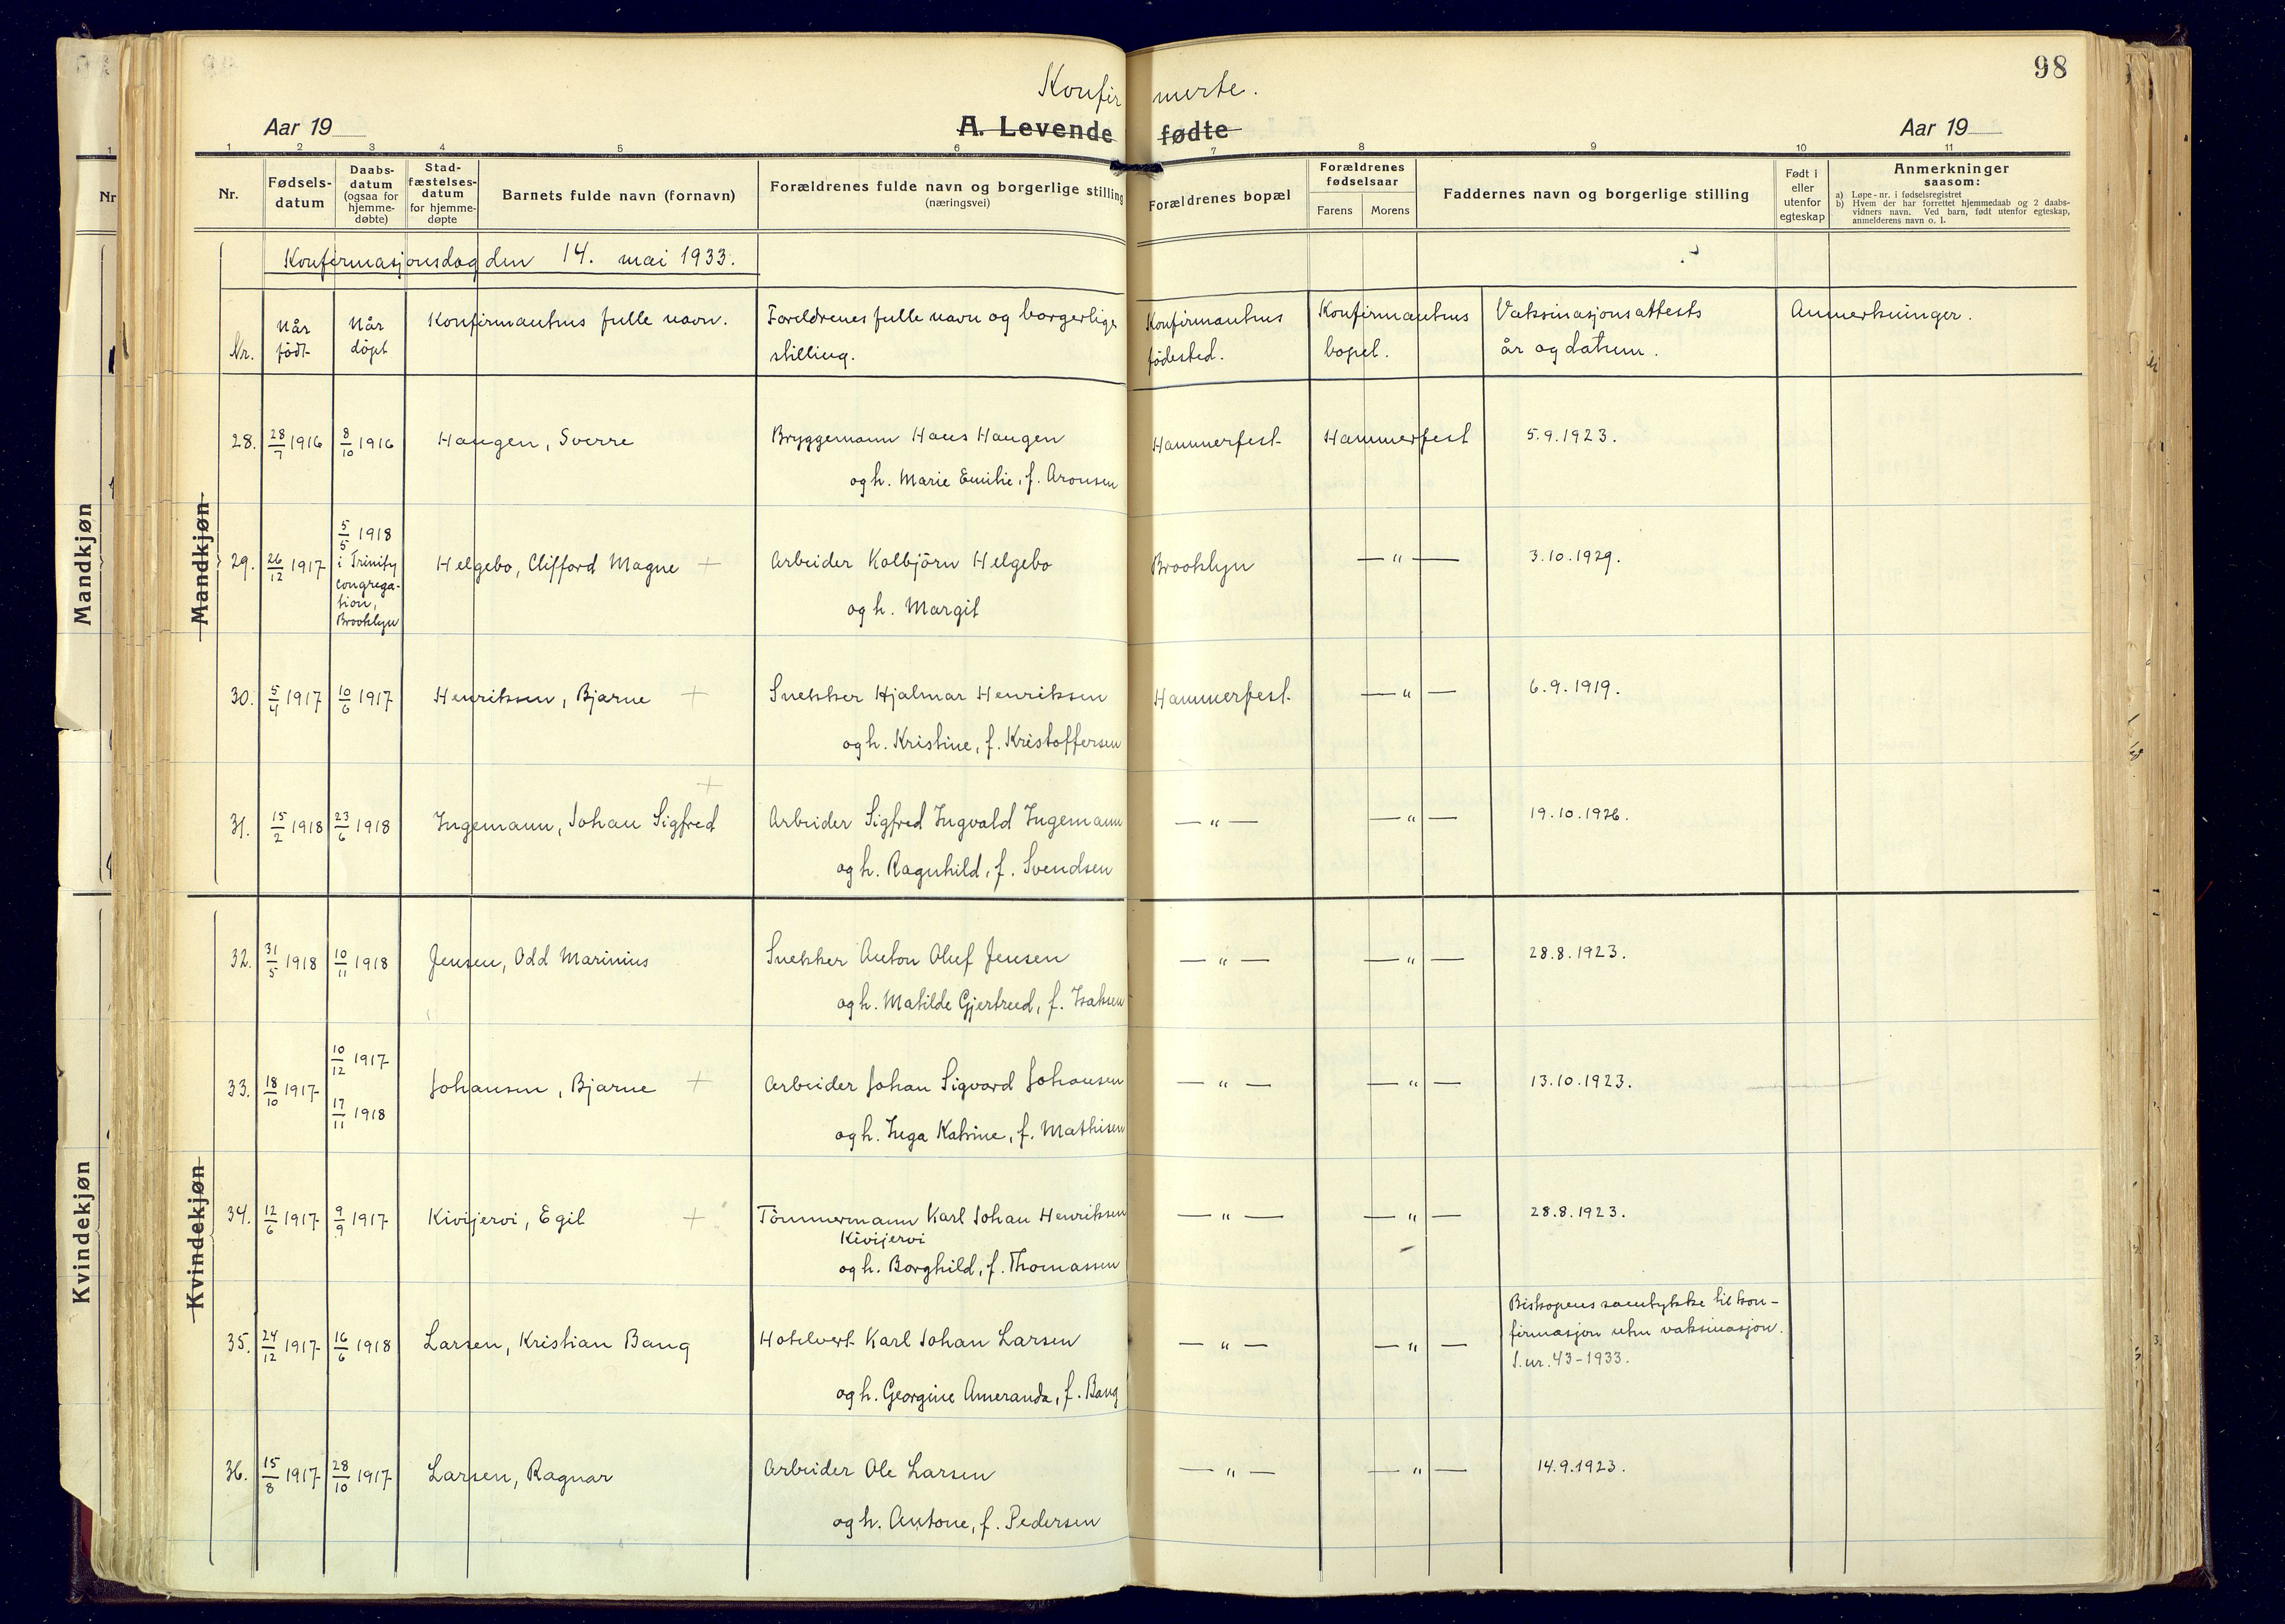 98
Konfirmerte.
Aar 19
A. Levende fødte
Aar 19
1 2 3 4 5 6 7 8 9 10 11
Nr.
Fødsels-
datum
Daabs-
datum
(ogsaa for
hjemme-
døbte)
Stad-
fæstelses-
datum
for hjemme-
døpte
Barnets fulde navn (fornavn)
Forældrenes fulde navn og borgerlige stilling
(næringsvei)
Forældrenes bopæl
Forældrenes
fødselsaar
Farens Morens
Faddernes navn og borgerlige stilling
Født i
eller
utenfor
egteskap
Anmerkninger
saasom:
a) Løpe-nr. i fødselsregistret
b) Hvem der har forrettet hjemmedaab og 2 daabs-
vidners navn. Ved barn, født utenfor egteskap,
anmelderens navn o. l.
Konfirmasjonsdag den 14. mai 1933.
Nr.
Når
født
Når
döpt
Konfirmantens fulle navn.
Foreldrenes fulle navn og borgerlige
stilling.
Konfirmantens
fødested.
Konfirmantens
bopel.
Vaksinasjonsattests
år og datum.
Anmerkninger.
Mandkjøn
Mandkjøn
28. 28/7 1916 8/10 1916 Haugen, Sverre Bryggemann Hans Haugen Hammerfest Hammerfest 5.9.1923.
og h. Marie Emilie, f. Aronsen
29. 26/12 1917 5/5 1918 Helgebo, Clifford Magne + Arbeider Kolbjörn Helgebo Brooklyn — " — 3.10.1929.
i Trinity
congrega-
tion,
Brooklyn
og h. Margit
30. 5/4 1917 10/6 1917 Henriksen, Bjarne + Snekker Hjalmar Henriksen Hammerfest. — " — 6.9.1919.
og h. Kristine, f. Kristoffersen
31. 15/2 1918 23/6 1918 Ingemann, Johan Sigfred + Arbeider Sigfred Ingvald Ingemann — " — — " — 19.10.1926.
og h. Ragnhild, f. Svendsen
Kvindekjøn
Kvindekjøn
32. 31/5 1918 10/11 1918 Jensen, Odd Marinius Snekker Anton Oluf Jensen — " — — " — 28.8.1923.
og h. Matilde Gjertreed, f. Isaksen
33. 18/10 1917 10/12 1917 17/11 1918 Johansen, Bjarne + Arbeider Johan Sigvard Johansen — " — — " — 13.10.1923.
og h. Inga Katrine, f. Mathisen
34. 12/6 1917 9/9 1917 Kivijervi, Egil + Tömmermann Karl Johan Henriksen — " — — " — 28.8.1923.
Kivijervi
og h. Borghild, f. Thomassen
35. 24/12 1917 16/6 1918 Larsen, Kristian Bang Hotelvert Karl Johan Larsen — " — — " —
Biskopens samtykke til kon-
firmasjon uten vaksinasjon.
J. nr. 43-1933.
og h. Georgine Ameranda, f. Bang
36. 15/8 1917 28/10 1917 Larsen, Ragnar Arbeider Ole Larsen — " — — " — 14.9.1923.
og h. Antone, f. Pedersen